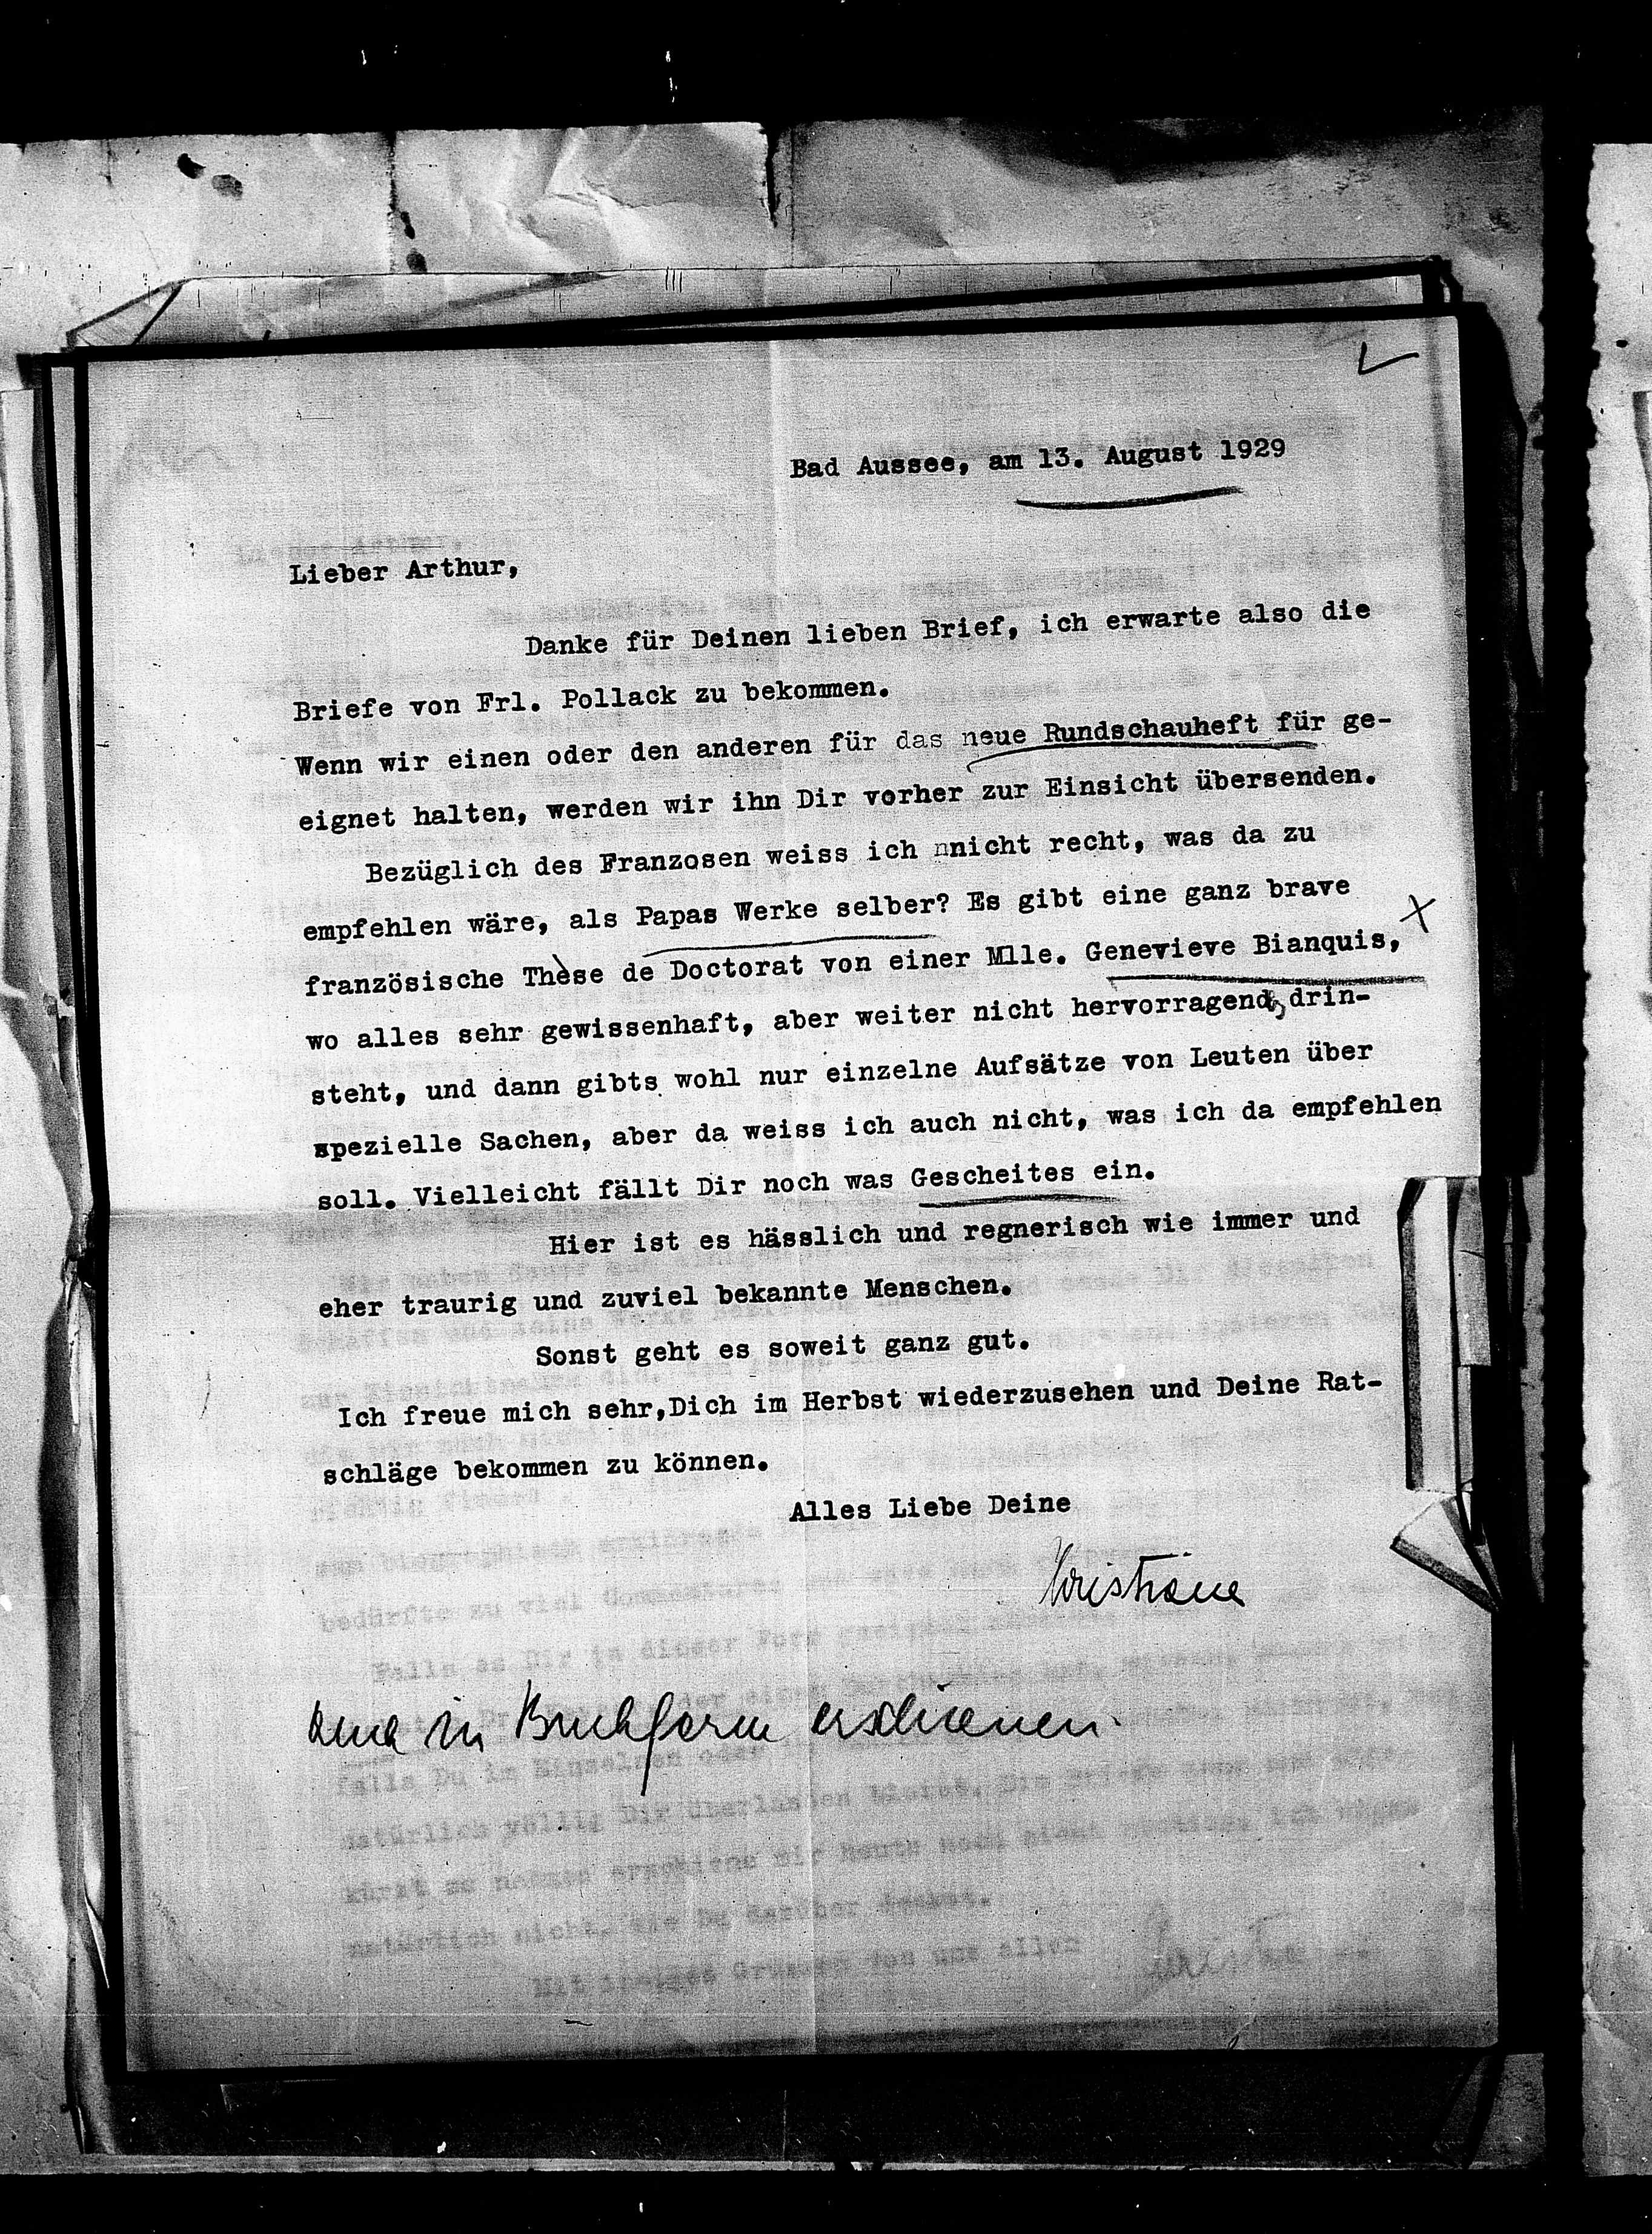 Bad Aussee, am 13. August 1929
Lieber Arthur,
Danke für Deinen lieben Brief, ich erwarte also die
Briefe von Frl. Pollack zu bekommen.
Wenn wir einen oder den anderen für das neue Rundschauheft für ge-
eignet halten, werden wir ihn Dir vorher zur Einsicht übersenden.
Bezüglich des Franzosen weiss ich nnicht recht, was da zu
empfehlen wäre, als Papas Werke selber? Es gibt eine ganz brave
französische Thèse de Doctorat von einer Mlle. Genevieve Bianquis, x
wo alles sehr gewissenhaft, aber weiter nicht hervorragend, drin-
steht, und dann gibts wohl nur einzelne Aufsätze von Leuten über
spezielle Sachen, aber da weiss ich auch nicht, was ich da empfehlen
soll. Vielleicht fällt Dir noch was Gescheites ein.
Hier ist es hässlich und regnerisch wie immer und
eher traurig und zuviel bekannte Menschen.
Sonst geht es soweit ganz gut.
Ich freue mich sehr,Dich im Herbst wiederzusehen und Deine Rat-
schläge bekommen zu können.
Alles Liebe Deine
Christiane
in Buchform erschienen.